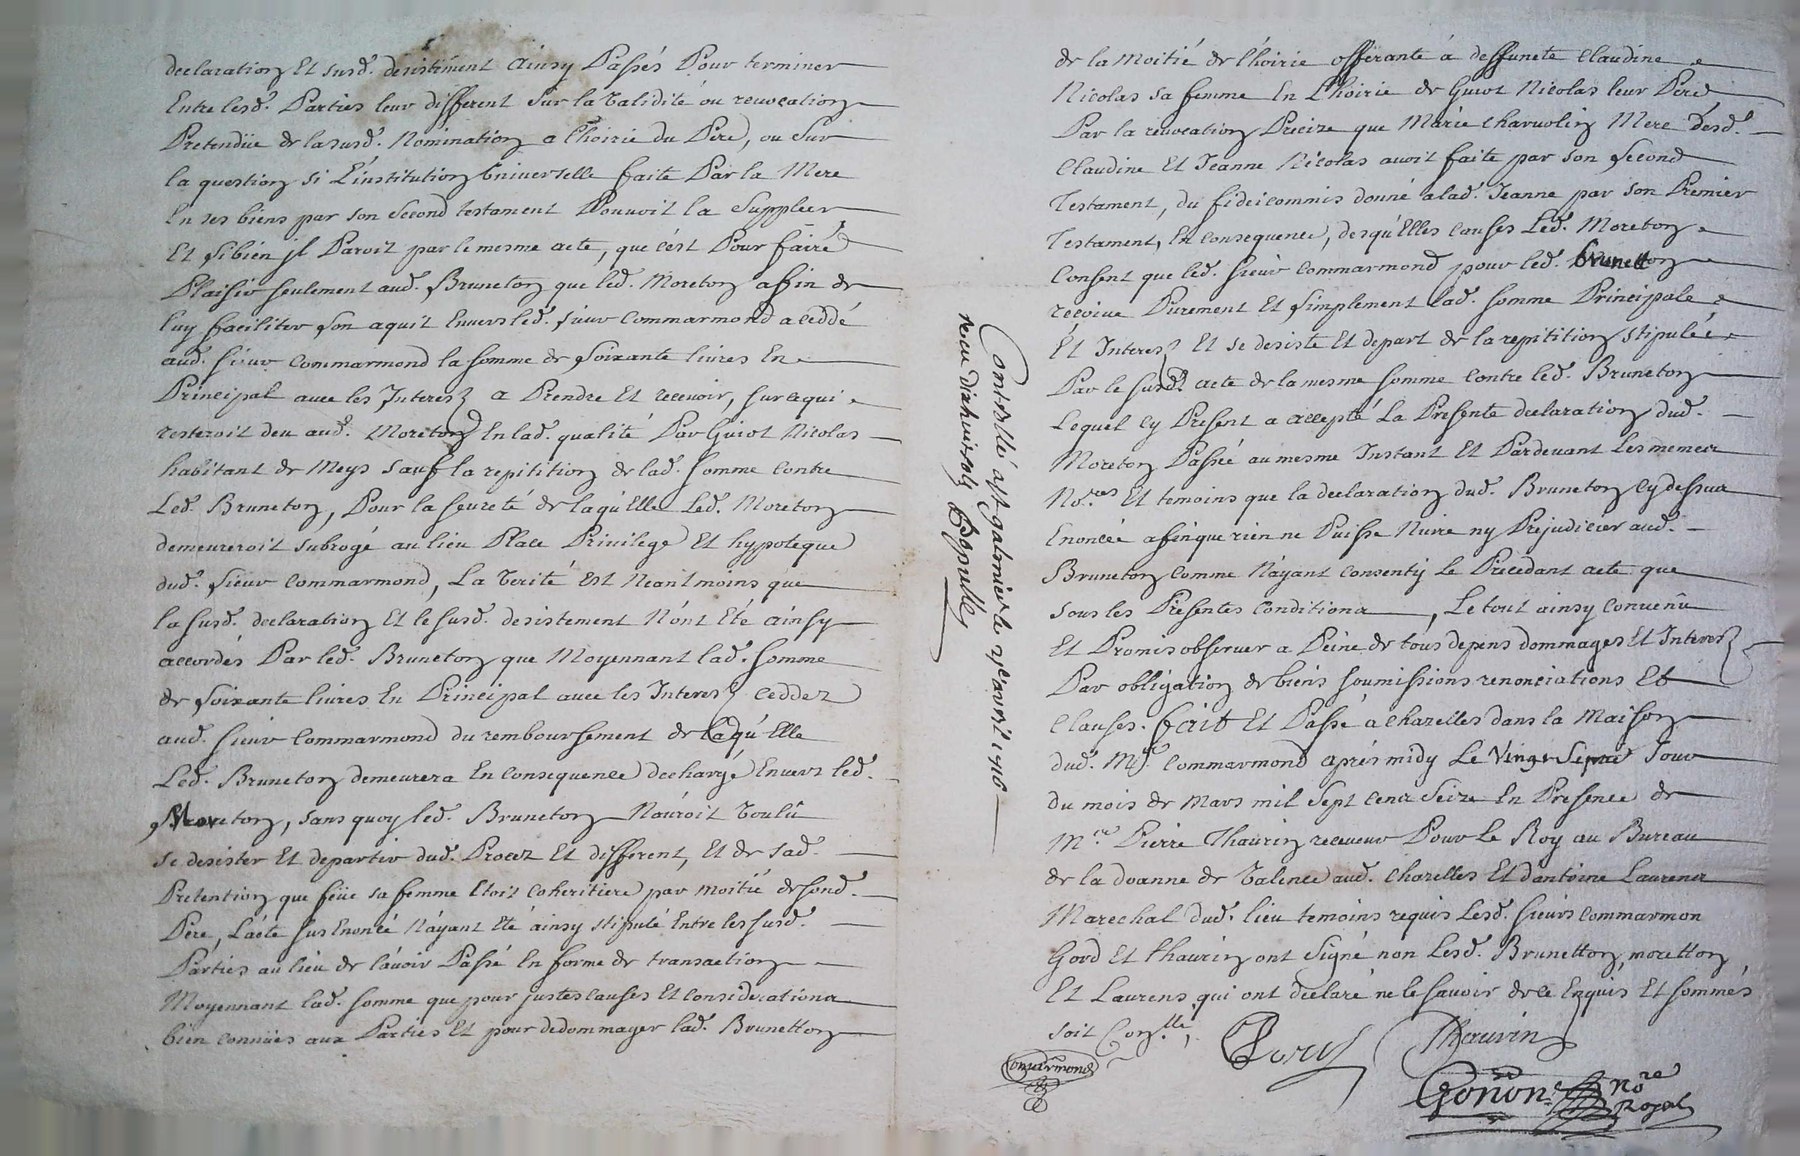 declaration Et susd. desistiment Ainsy Passés Pour terminer
Entre lesd. Parties leur different sur la Validité ou revocation
Pretendüe de la susd. Nomination a l'hoirie du Pere, ou sur
la question si L'institution Universelle faite Par la Mere
En ses biens par son second testament Pouvoit la Suppleer
Et si bien jl Paroit par le mesme acte, que c'est Pour faire
Plaisir seulement aud. Bruneton que led. Moreton affin de
luy faciliter son aquit Envers led. sieur Commarmond a ceddé
aud. sieur Commarmond la somme de soixante livres En
Principal avec les Interes a Prendre Et recevoir, sur ce qui
resteroit deu aud. Moreton En lad. qualité Par Guiot Nicolas
habitant de Meys sauf la repitition de lad. somme contre
Led. Bruneton, Pour la seureté de laqu'Elle Led. Moreton
demeureroit subrogé au lieu Place Privilege Et hypoteque
dud. sieur Commarmond, La Verité Est Neantmoins que
la susd. declaration Et le susd. desistement N'ont Eté ainsy
accordés Par led. Bruneton que Moyennant lad. somme
de soixante livres En Principal avec les Interes ceddez
aud. sieur Commarmond du remboursement de laqu'Elle
Led. Bruneton demeurera En consequence dechargé Envers led.
Moreton, sans quoy led. Bruneton N'auroit Voulû
se desister Et departir dud. Procez Et different, Et de sad.
Pretention que feüe sa femme Etoit coheritiere par moitié de sond.
Pere, L'acte sus Enoncé N'ayant Eté ainsy stipulé Entre les susd.
Parties au lieu de l'avoir Passé En forme de transaction
Moyennant lad. somme que pour justes causes Et considerations
bien connües aux Parties Et pour dedommager lad. Brunetton
Controllé a St galmier le 2 avril 1716
receu dixhuit sols
de la Moitié de l'hoirie offerante á deffuncte Claudine
Nicolas sa femme En L'hoirie de Guiot Nicolas leur Pere
Par la revocation Precize que Marie Charvolin Mere desd.
Claudine Et Jeanne Nicolas avoit faite par son second
Testament, du fideicommis donné a lad. Jeanne par son Premier
Testament, En consequence, desqu'Elles causes Led. Moreton
Consent que led. sieur Commarmond pour led. Brunetton
recoive Purement Et simplement lad. somme Principale
Et Interes Et se desiste Et depart de la repitition stipulée
Par le susd. acte de la mesme somme Contre led. Bruneton
Lequel Cy Present a accepté La Presente declaration dud.
Moreton Passée au mesme Instant Et Pardevant Les memes
No.res Et temoins que la declaration dud. Bruneton Cy dessus
Enoncée afin que rien ne Puisse Nuire ny Prejudicier aud.
Bruneton Comme N'ayant Consenty Le Precedant acte que
sous les Presentes Conditions, Le tout ainsy Convenû
Et Promis observer a Peine de tous depens dommages Et Interes
Par obligation de biens soumissions renonciations Et
Clauses. fait Et Passé a Chazelles dans la Maison
dud. Mr. Commarmond apres midy Le Vingt Septme Jour
du mois de Mars mil sept Cent Seize En Presence de
M.re Pierre Thaurin receveur Pour Le Roy au Bureau
de la doanne de Valence aud. Chazelles Et d'antoine Laurens
Marechal dud. lieu temoins requis Lesd. sieurs Commarmon
Gord Et thaurin ont Signé non Lesd. Brunetton, moretton
Et Laurens qui ont declaré ne le savoir de ce Enquis Et sommés
soit Con.lle
Commarmond
Thaurin
Gonon No.re Royal